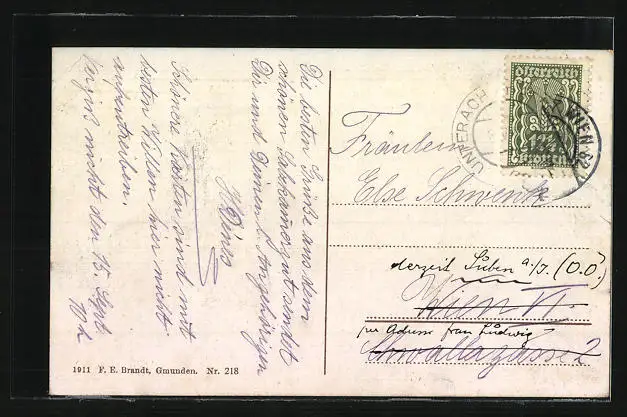 Die besten Grüße aus dem
schönen Salzkammergut sendet
Dir und Deinen l. Angehörigen
Schönere Karten sind mit
besten Willen hier nicht
aufzutreiben.
Vergiß nicht den 15. Sept.
Österreich
UNTERACH
WIEN
Fräulein
Else Schwenk
derzeit Suben a./I. (O.Ö.)
Wien VI
per Adresse frau Ludwig
2
1911 F. E. Brandt, Gmunden. Nr. 218